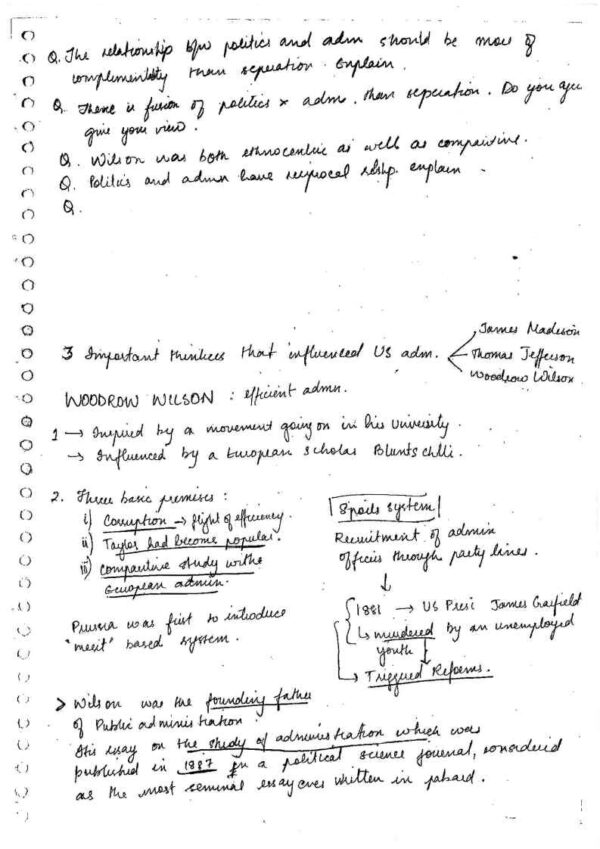 Q. The relationship b/w politics and adm should be more of
complementary than seperation. Explain.
Q. There is fusion of politics & adm. than seperation. Do you agree
give your view.
Q. Wilson was both ethnocentric as well as comparitive.
Q. Politics and admn have reciprocal relshp. explain.
Q.
3 Important thinkers that influenced US adm.
James Madison
Thomas Jefferson
Woodrow Wilson.
WOODROW WILSON : efficient admn.
1 → Inspired by a movement going on in his University.
→ Influenced by a European Scholar Bluntschlli.
2. Three basic premises :
i) Corruption → flight of efficiency.
ii) Taylor had become popular.
iii) Comparitive study with
European admin.
Prussia was first to introduce
"merit" based system.
Spoils system
Recruitment of admin
offices through party lines.
↓
1881 → US Presi James Garfield
↳ murdered by an unemployed
youth
→ Triggered Reforms.
> Wilson was the founding father
of Public administration.
His essay on the study of administration which was
published in 1887 in a political science journal, considered
as the most seminal essay ever written in pubad.